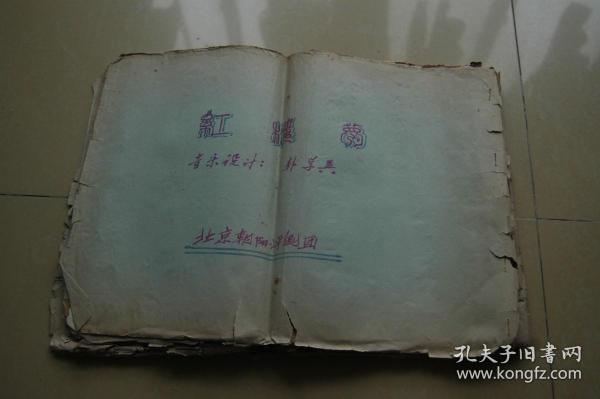 紅楼梦
音乐设计：朴学典
北京朝阳评剧团
孔夫子旧书网
www.kongfz.com